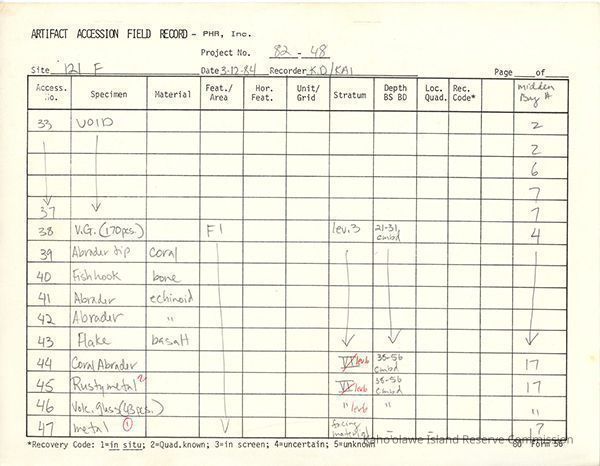 ARTIFACT ACCESSION FIELD RECORD - PHR, Inc.
Project No. 82 - 48
Site 121 F Date 3-12-84 Recorder K.D/KAI Page of
Access. No. Specimen Material Feat./ Area Hor. Feat. Unit/ Grid Stratum Depth BS BD Loc. Quad. Rec. Code* Midden Bag #
33 VOID 2
2
6
7
37 7
38 V.G. (170pcs.) F1 lev.3 21-31 cmbd 4
39 Abrader tip coral
40 Fishhook bone
41 Abrader echinoid
42 Abrader "
43 Flake basalt
44 Coral Abrader VI lev6 38-56 cmbd 17
45 Rusty metal 2 VI lev6 38-56 cmbd 17
46 Volc. glass (43pcs.) " lev6 " "
47 metal 1 facing material - 17
*Recovery Code: 1=in situ; 2=Quad.known; 3=in screen; 4=uncertain; 5=unknown 80 Form 56
Kaho'olawe Island Reserve Commission